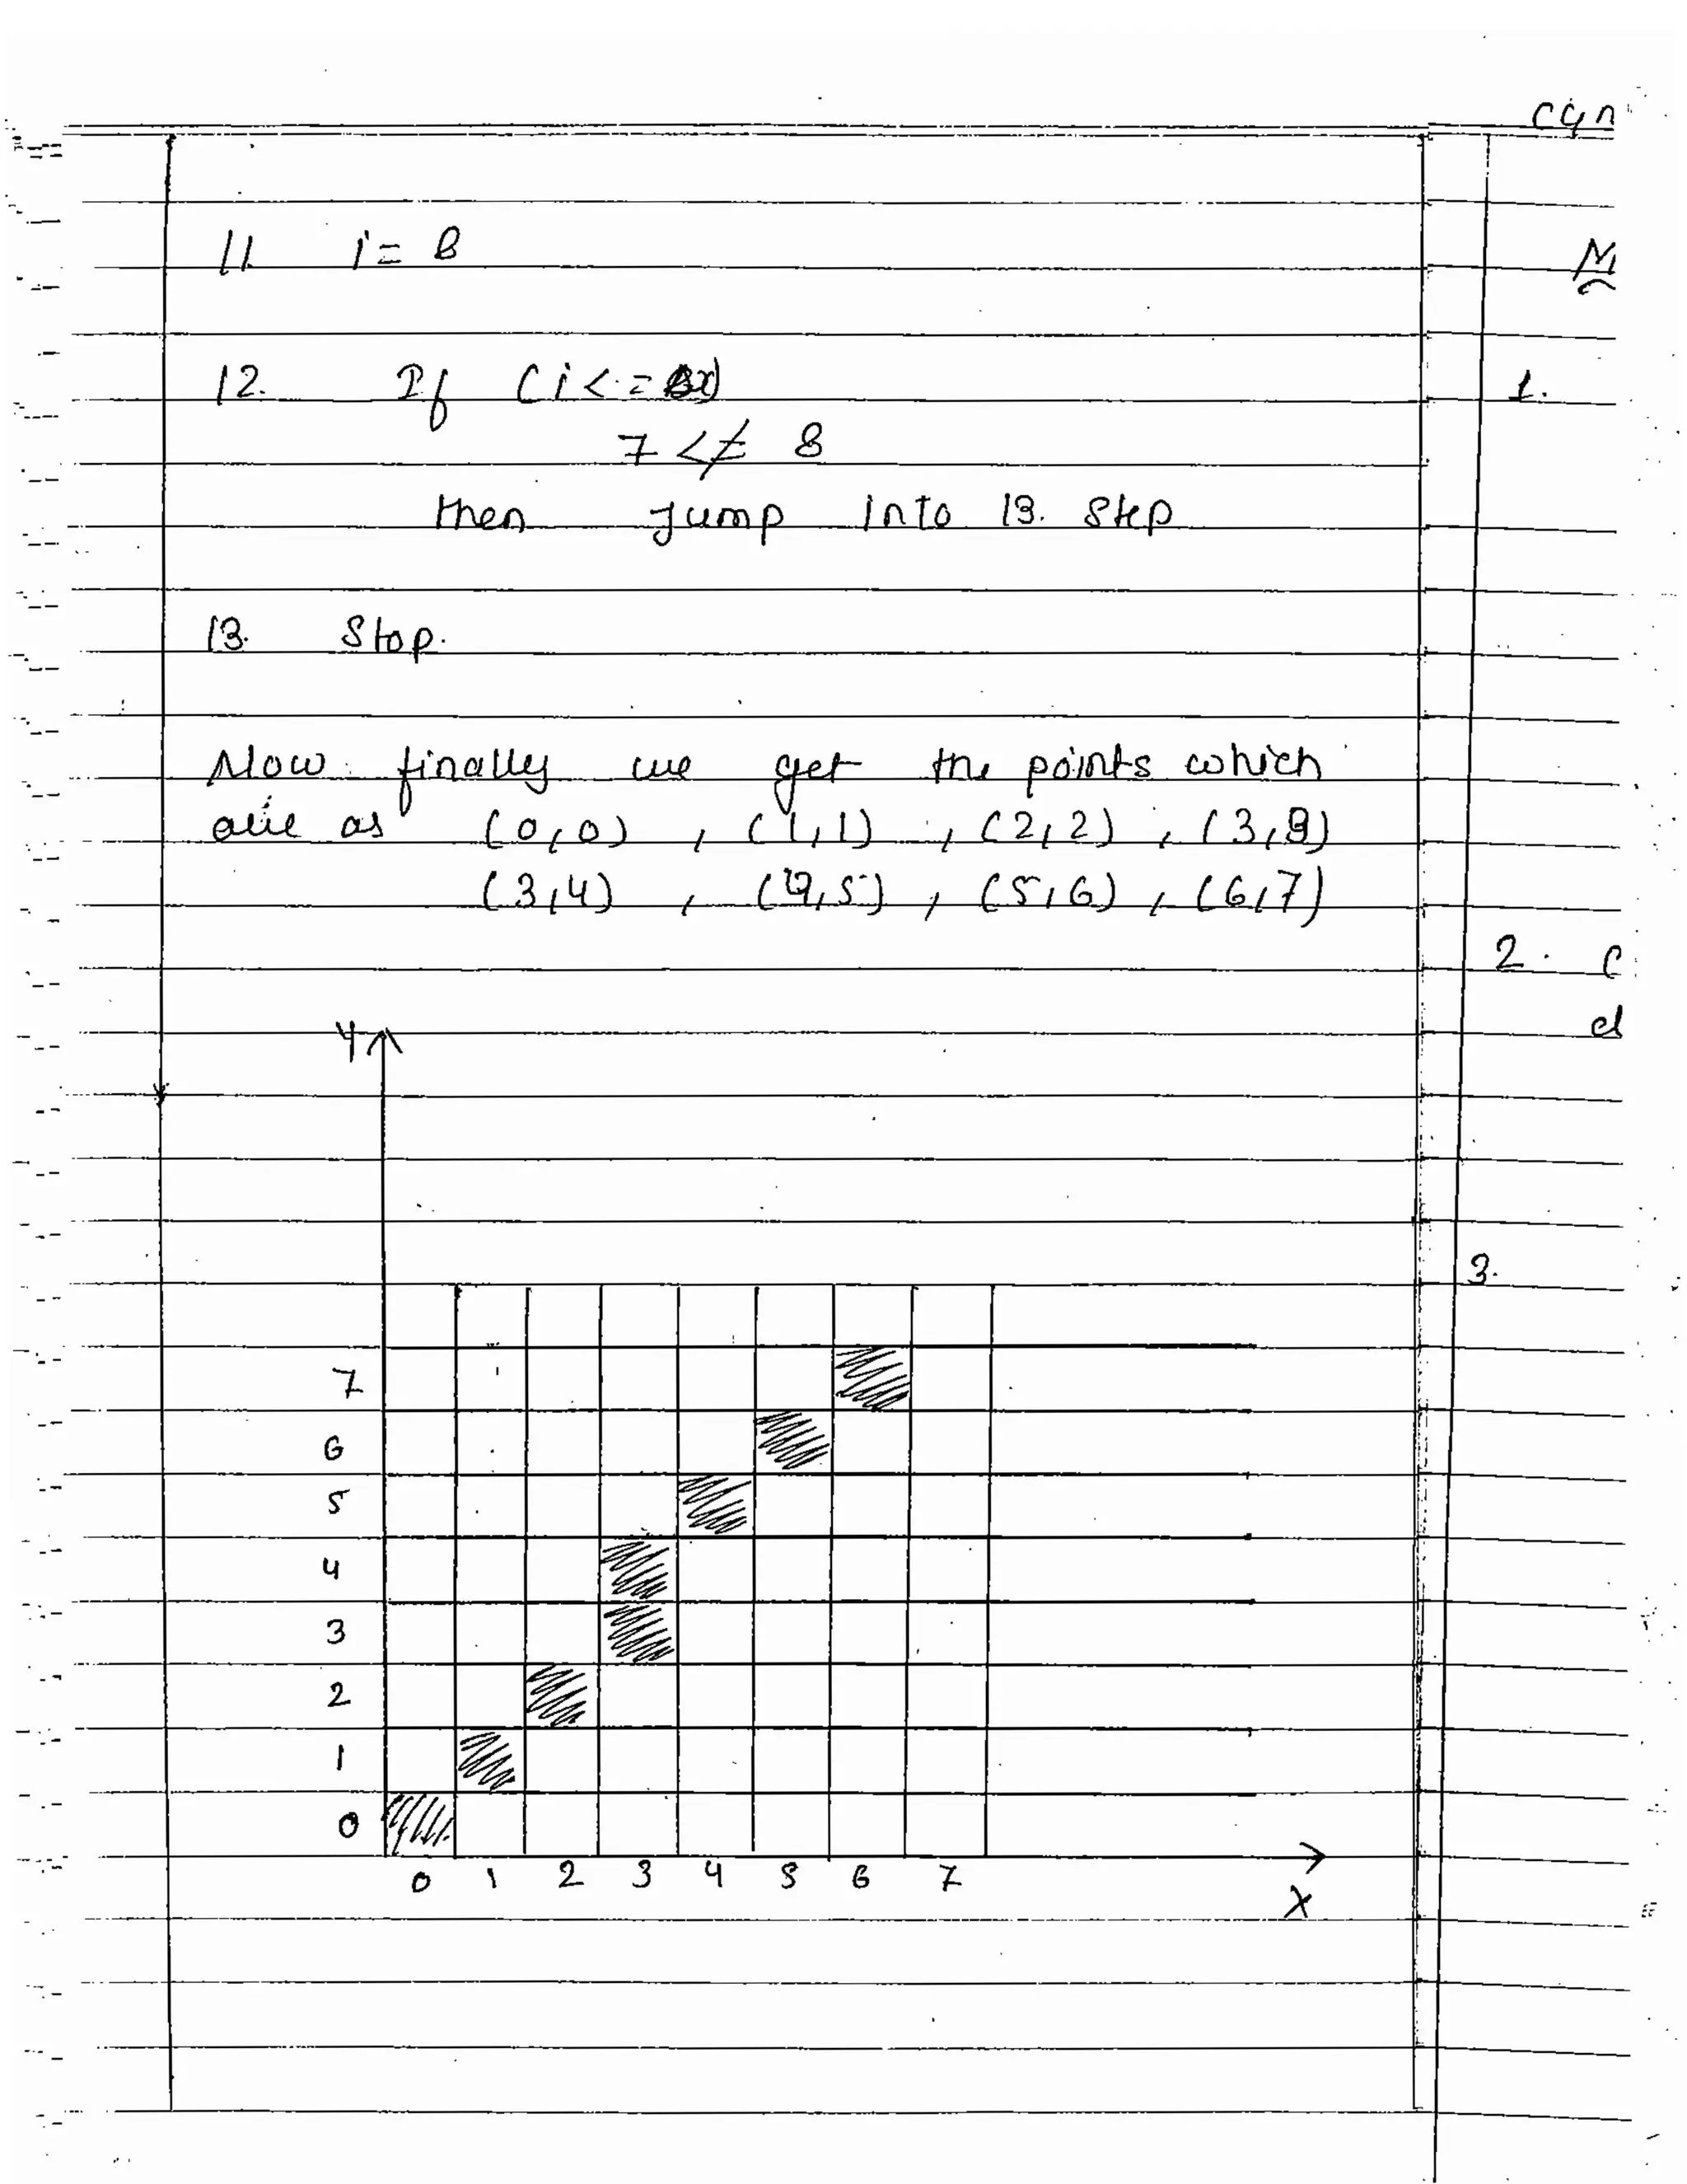 11. i = 8
12. If (i <=
7 <≠ 8
then jump into 13. Step
13. Stop.
Now finally we get the points which
are as (0,0) , (1,1) , (2,2) , (3,3)
(3,4) , (4,5) , (5,6) , (6,7)
Y
7
6
5
4
3
2
1
0
0 1 2 3 4 5 6 7
X
1.
2.
3.